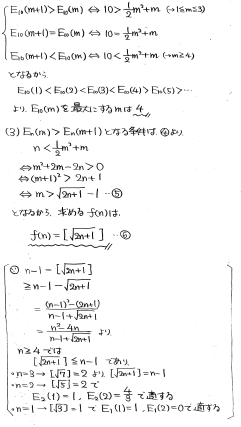 E₁₀(m+1)>E₁₀(m) ⇔ 10>½m²+m (→1≤m≤3)
E₁₀(m+1)=E₁₀(m) ⇔ 10=½m²+m
E₁₀(m+1)<E₁₀(m) ⇔ 10<½m²+m (→m≥4)
となるから
E₁₀(1)<E₁₀(2)<E₁₀(3)<E₁₀(4)>E₁₀(5)>…
より E₁₀(m)を最大にするmは 4
(3) Eₙ(m)>Eₙ(m+1)となる条件は, ④より
n<½m²+m
⇔m²+2m-2n>0
⇔(m+1)²>2n+1
⇔m>√(2n+1)-1 …⑤
となるから, 求めるf(n)は,
f(n)=[√(2n+1)] …⑥
n-1-[√(2n+1)]
≥n-1-√(2n+1)
=((n-1)²-(2n+1))/(n-1+√(2n+1))
=(n²-4n)/(n-1+√(2n+1)) より
n≥4では
[√(2n+1)]≤n-1 であり,
・n=3→[√7]=2より [√(2n+1)]=n-1
・n=2→[√5]=2で
E₂(1)=1, E₂(2)=4/3で適する
・n=1→[√3]=1で E₁(1)=1, E₁(2)=0で適する